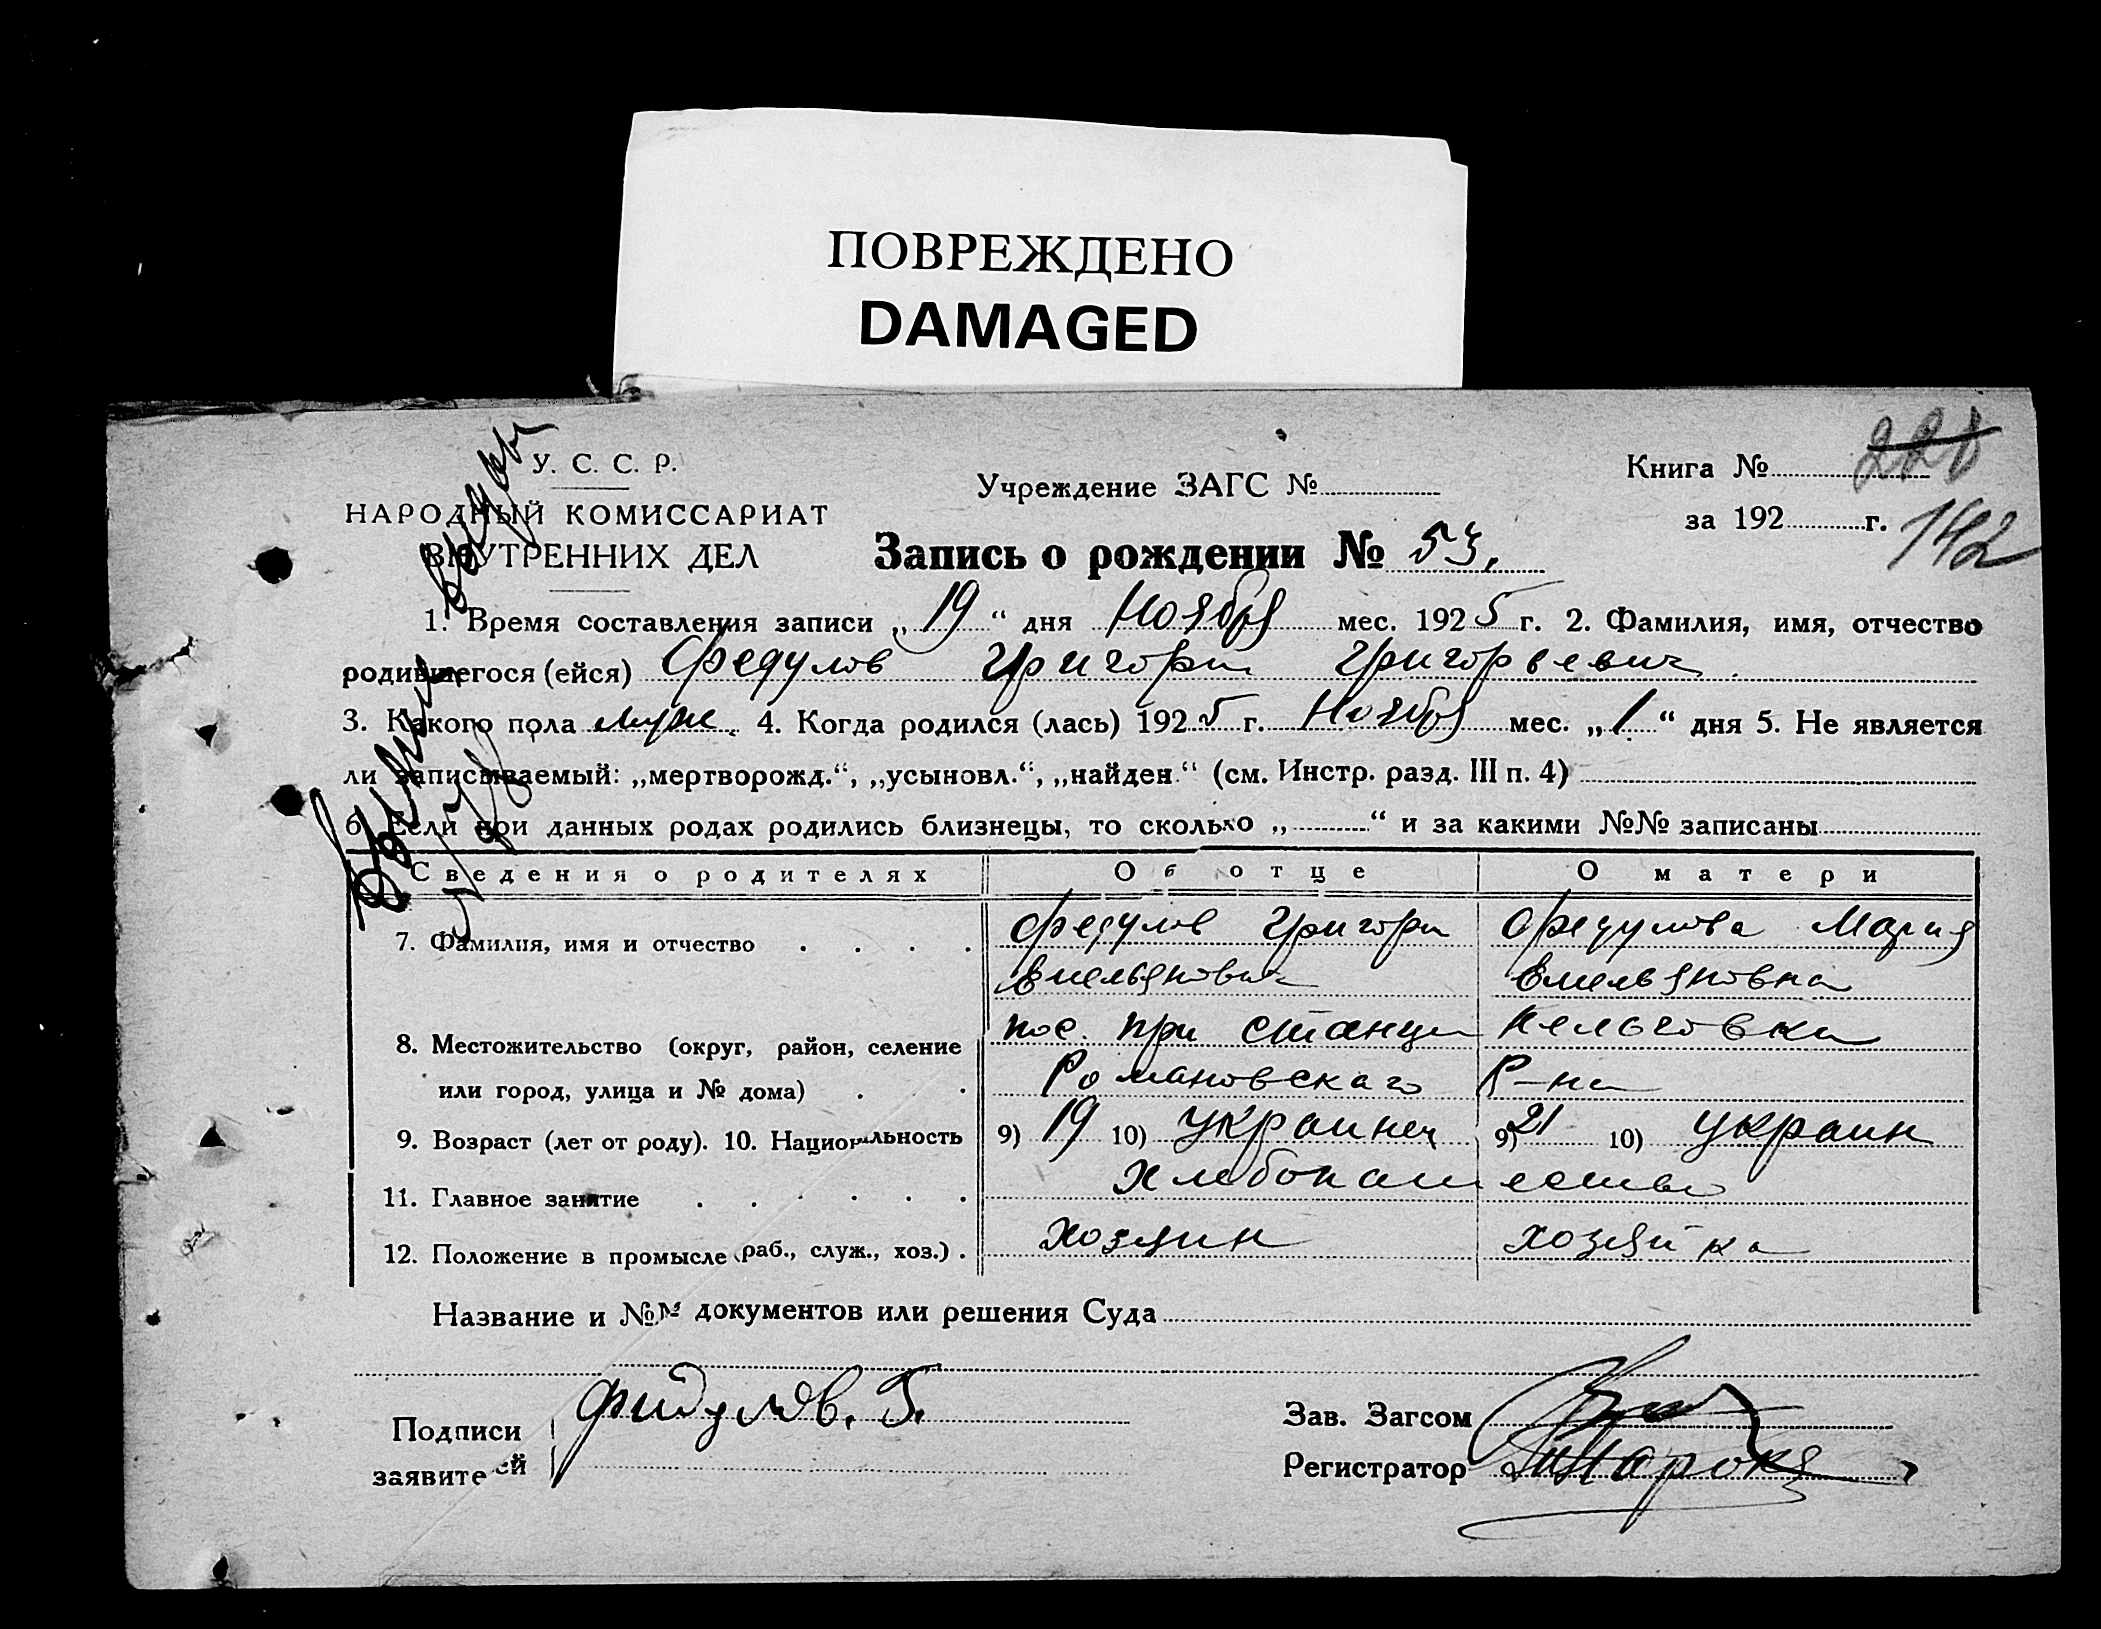 ПОВРЕЖДЕНО
DAMAGED
У. С. С. Р.
НАРОДНЫЙ КОМИССАРИАТ
ВНУТРЕННИХ ДЕЛ
Учреждение ЗАГС №
Книга № 228
за 192 г. 142
Запись о рождении № 53.
1. Время составления записи „19“ дня Ноября мес. 1925 г. 2. Фамилия, имя, отчество
родившегося (ейся) Федулов Григори Григорьевич
3. Какого пола муж. 4. Когда родился (лась) 1925 г. Ноября мес. „1“ дня 5. Не является
ли записываемый: „мертворожд.“, „усыновл.“, „найден.“ (см. Инстр. разд. III п. 4)
6. Если при данных родах родились близнецы, то сколько „ “ и за какими №№ записаны
Сведения о родителях Об отце О матери
7. Фамилия, имя и отчество Федулов Григори Федулова Мария
Емельянович Емельяновна
8. Местожительство (округ, район, селение пос. при станци Нельговка
или город, улица и № дома) Романовского Р-на
9. Возраст (лет от роду). 10. Национальность 9) 19 10) украинец 9) 21 10) украин
11. Главное занятие Хлебопашество
12. Положение в промысле (раб., служ., хоз.) хозяин хозяйка
Название и №№ документов или решения Суда
Подписи Фидулов. Г.
заявителей
Зав. Загсом
Регистратор